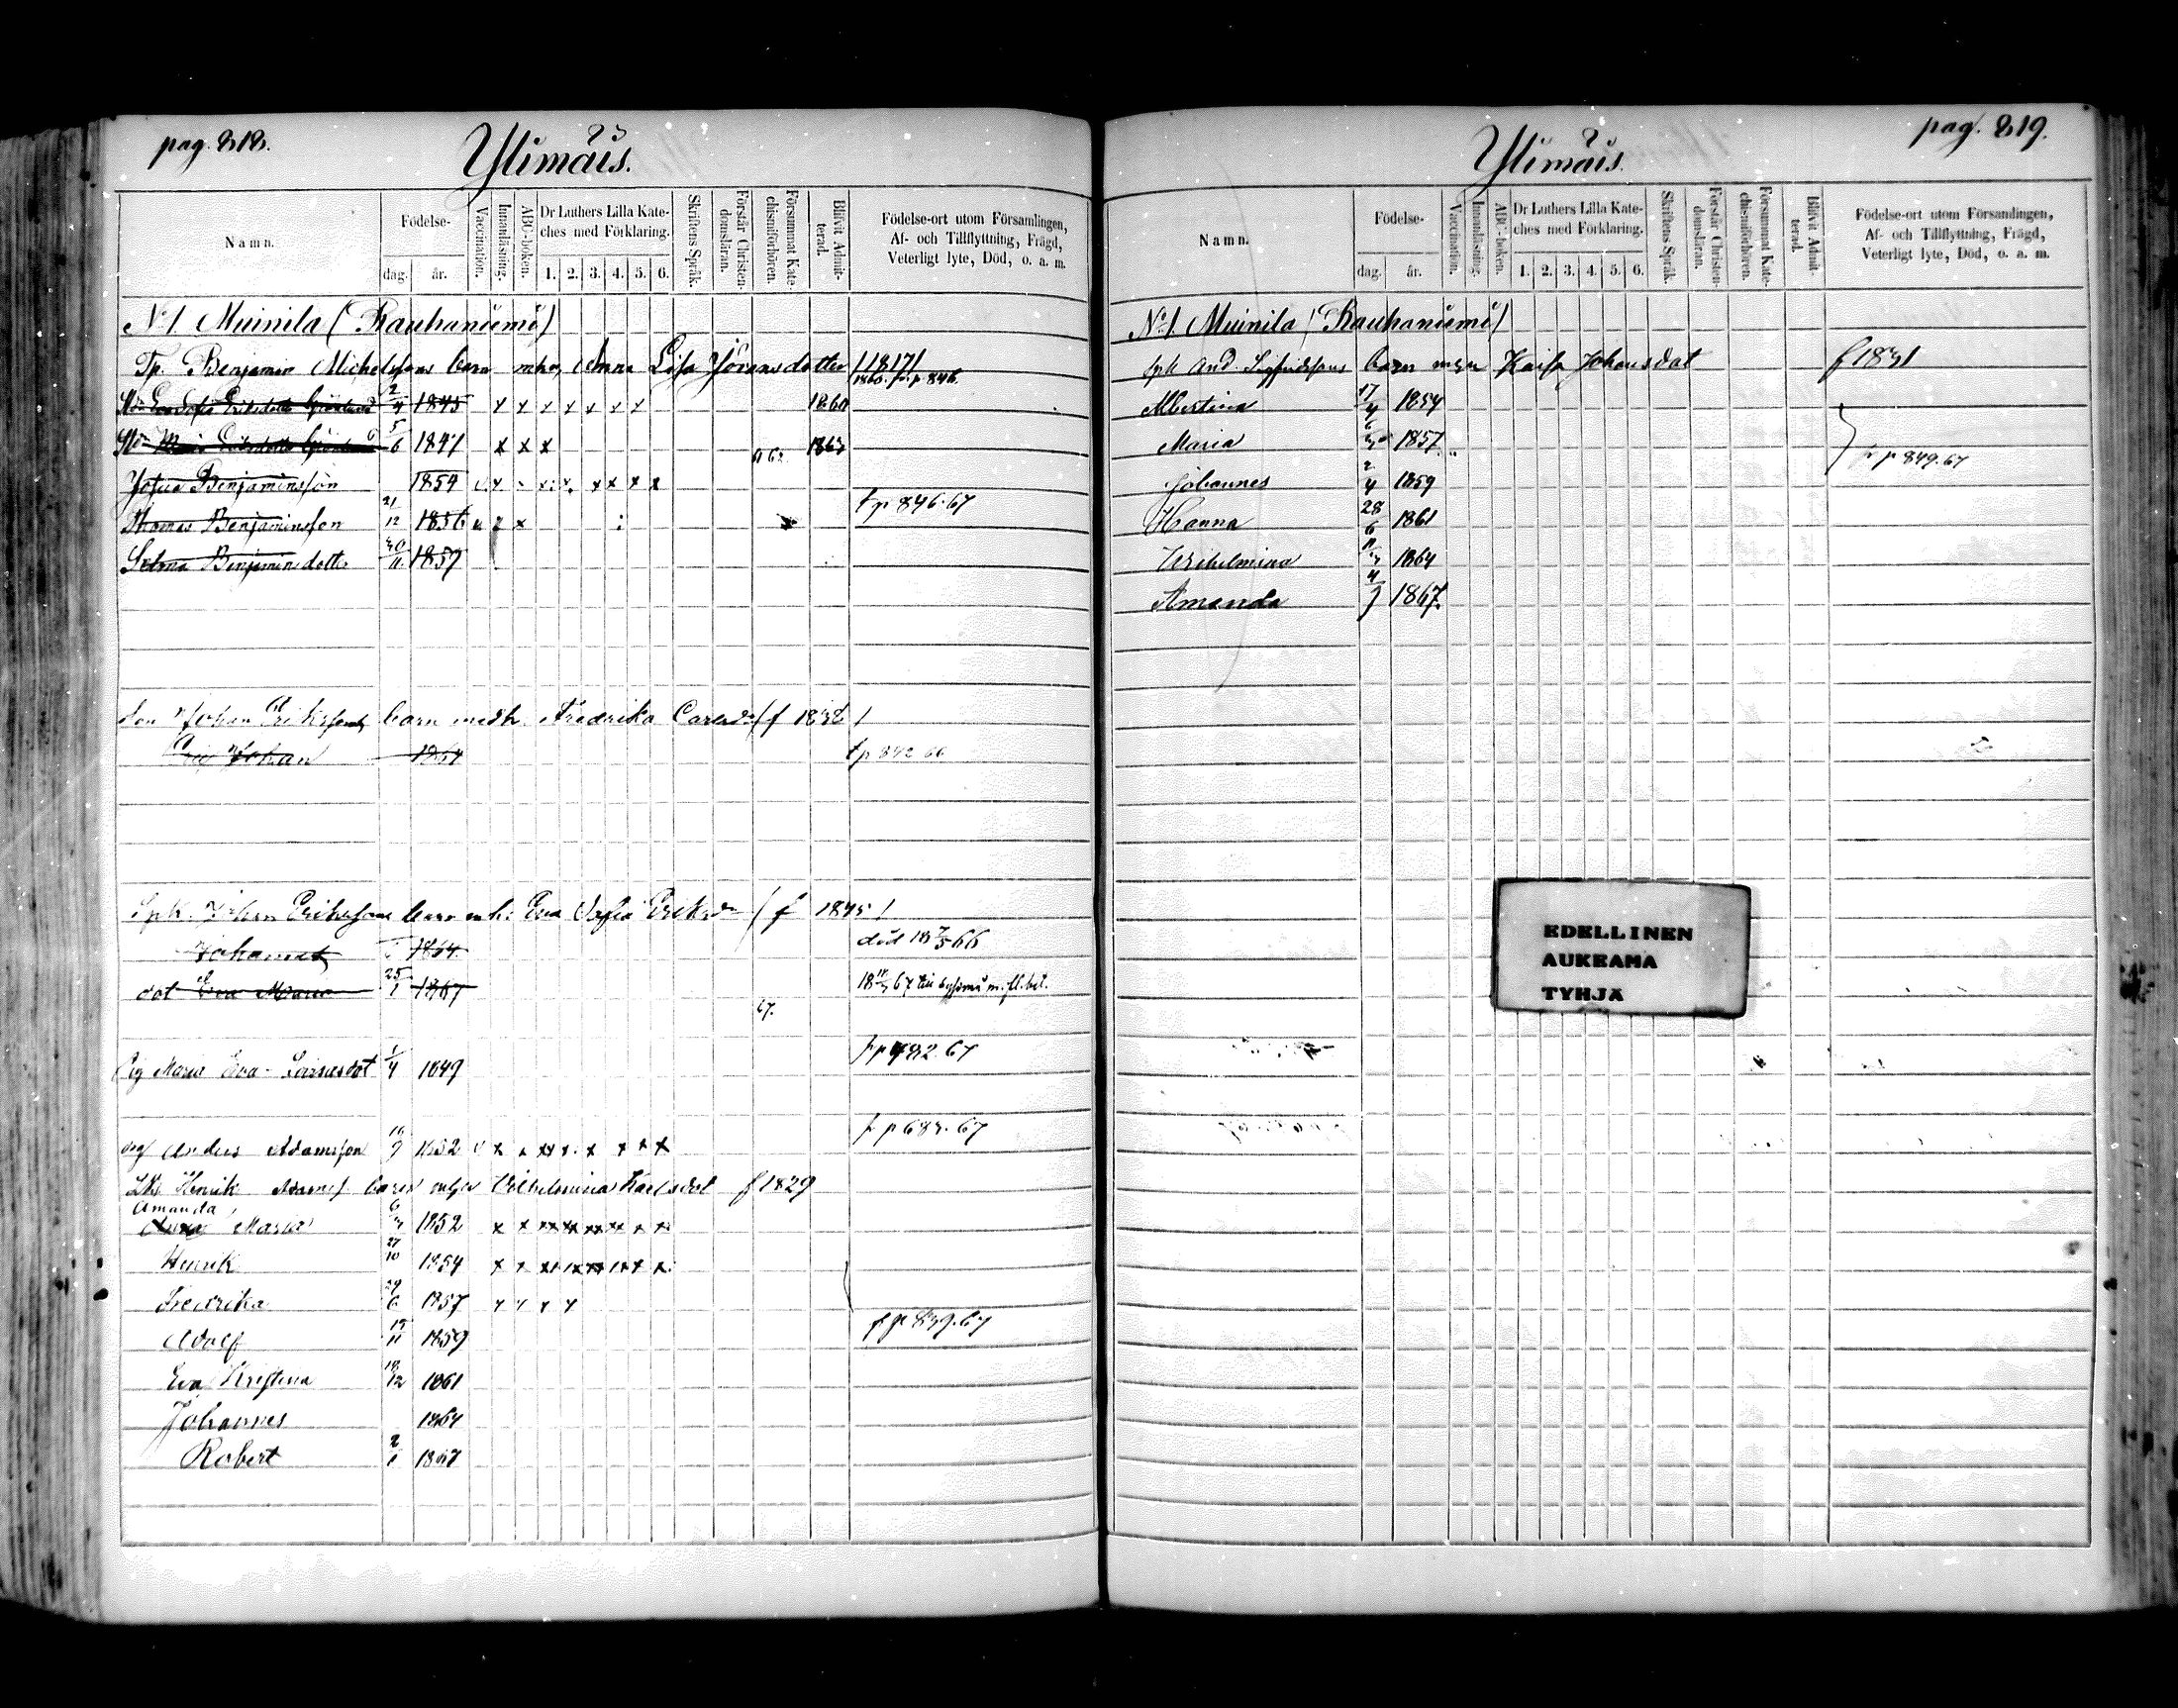 pag. 818.
Ylimäis.
Namn.
Födelse-
dag.
år.
Vaccination.
Innanläsning.
ABC-boken.
Dr Luthers Lilla Kate-
ches med Förklaring.
1. 2. 3. 4. 5. 6.
Skriftens Språk.
Förstår Christen-
domsläran.
Försummat Kate-
chismiförhören.
Blifvit Admit-
terad.
Födelse-ort utom Församlingen,
Af- och Tillflyttning, Frägd,
Veterligt lyte, Död, o. a. m.
No 1. Muinila (Rauhaniemi)
Tp. Benjamin Michelssons barn mhu Anna Lisa Jöransdotter /1817/
Eva Sofia Eriksdotter 2/4 1845 x x x x x x x 1860 p 846
Maria Eriksdotter 5/6 1847 x x x 1863
Josua Benjaminsson 1854
Thomas Benjaminsson 21/12 1856 fp 846.67
Selma Benjaminsdotter 30/11 1859
son Johan Erikssons barn medh. Fredrika Carlsdr (f 1838)
Eric Johan 1864 fp 842 66
Spk. Johan Erikssons barn mh: Eva Sofia Eriksdr (f 1845)
Johannes 1864 död 18 7/5 66
dot Eva Maria 25/1 1867
67.
Pig Maria Eva Larsdot 1/4 1849
Anders Adamsson 16/9 1852
Henrik Adamss barn m hu Vilhelmina Karlsdot f 1829
Amanda
Maria 6/3 1852
Henrik 27/10 1854
Fredrika 29/6 1857 x x x x
Adolf 15/11 1859 fp 839.67
Eva Kristina 18/12 1861
Johannes 1864
Robert 2/1 1867
pag. 819.
Ylimäis.
Namn.
Födelse-
dag.
år.
Vaccination.
Innanläsning.
ABC-boken.
Dr Luthers Lilla Kate-
ches med Förklaring.
1. 2. 3. 4. 5. 6.
Skriftens Språk.
Förstår Christen-
domsläran.
Försummat Kate-
chismiförhören.
Blifvit Admit-
terad.
Födelse-ort utom Församlingen,
Af- och Tillflyttning, Frägd,
Veterligt lyte, Död, o. a. m.
No 1. Muinila (Rauhaniemi)
Spk And. Sigfridssons barn m hu Kaisa Johansdot f 1831
Albertina 17/4 1854
Maria 6/3 1857 fp 849.67
Johannes 2/4 1859
Hanna 28/6 1861
Wilhelmina 1864
Amanda 4/7 1867.
EDELLINEN
AUKEAMA
TYHJÄ